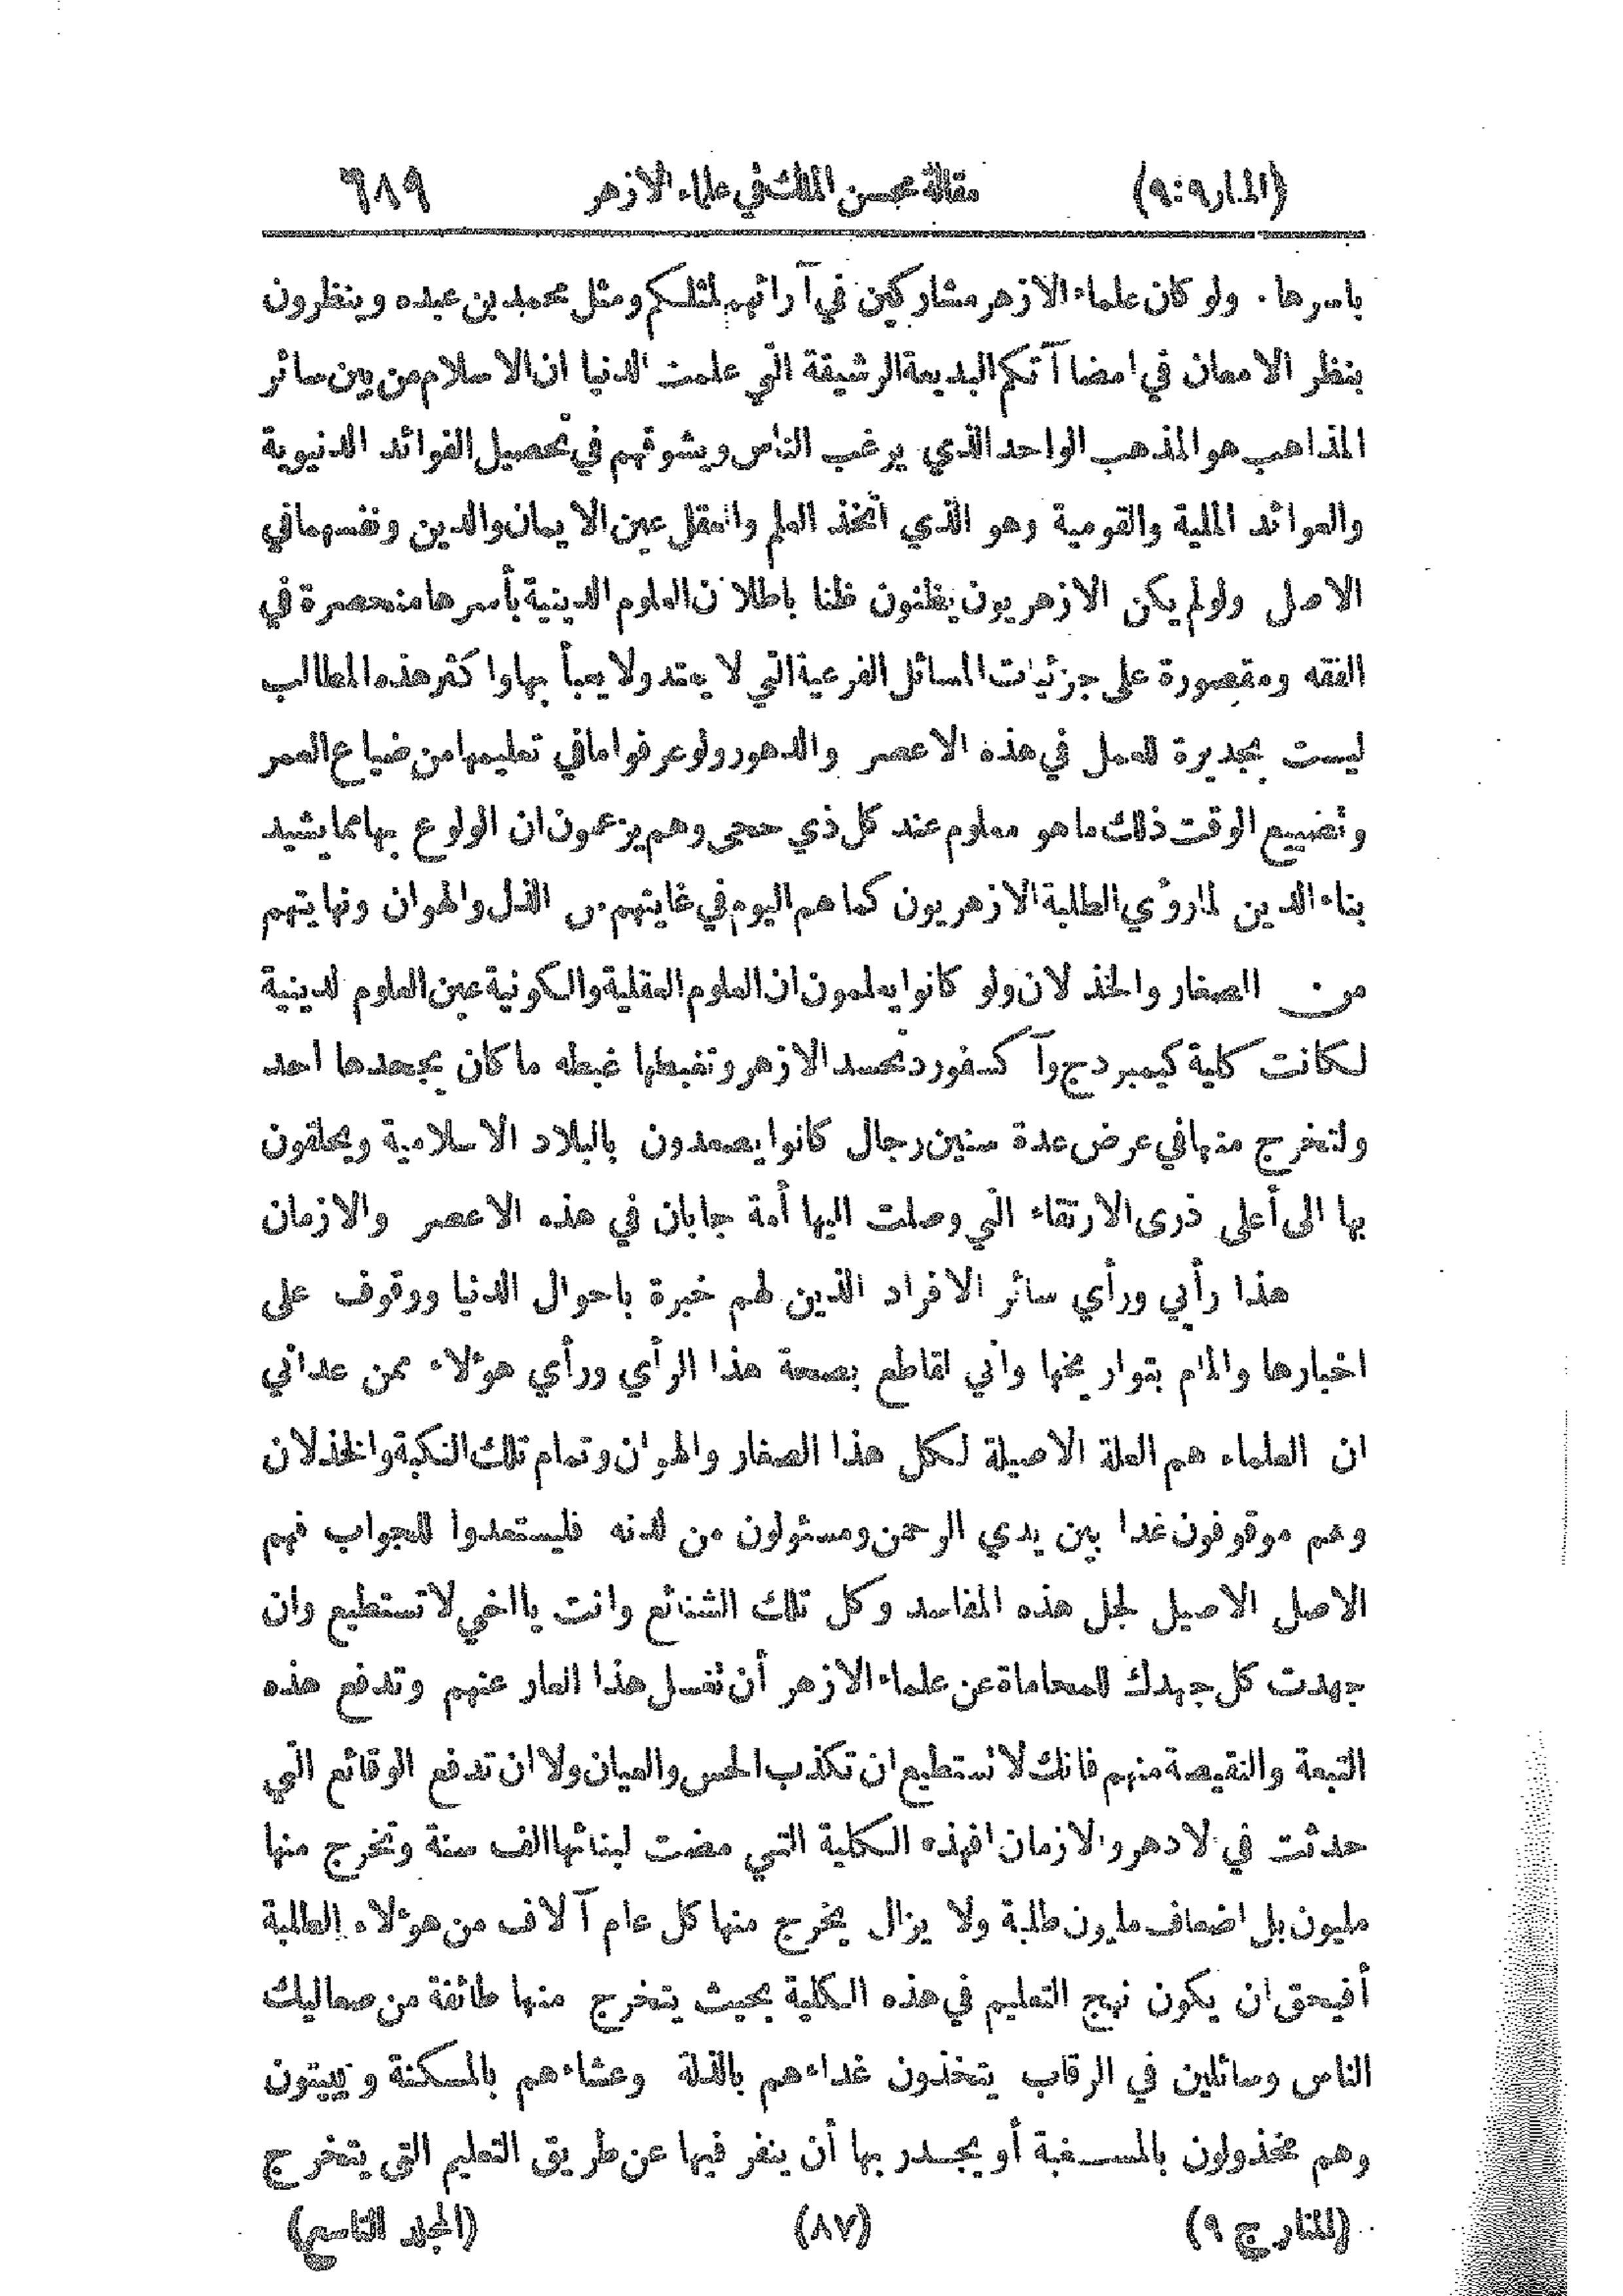 (المنار ٩:٩) مقالة محسن الملك في علماء الازهر ٦٨٩
باسرها. ولو كان علماء الازهر مشاركين في آرائهم لمثلكم ومثل محمد بن عبده وينظرون
بنظر الامعان في امضاآتكم البديعة الرشيقة التي علمت الدنيا ان الاسلام من بين سائر
المذاهب هو المذهب الواحد الذي يرغب الناس ويشوقهم في تحصيل الفوائد الدنيوية
والعوائد الملية والقومية وهو الذي اتخذ العلم والعقل عين الايمان والدين ونفسهما في
الاصل ولو لم يكن الازهريون يظنون ظنا باطلا ن العلوم الدينية بأسرها منحصرة في
الفقه ومقصورة على جزئيات المسائل الفرعية التي لا يعتد ولا يعبأ بها واكثر هذه المطالب
ليست بجديرة للعمل في هذه الاعصر والدهور ولو عرفوا مافي تعليمها من ضياع العمر
وتضييع الوقت ذلك ما هو معلوم عند كل ذي حجى وهم يزعمون ان الولوع بها مما يشيد
بناء الدين لما رؤي الطلبة الازهريون كما هم اليوم في غايتهم من الذل والهوان ونهايتهم
من الصغار والخذلان ولو كانوا يعلمون ان العلوم العقلية والكونية عين العلوم لدينية
لكانت كلية كيمبردج وآكسفورد تحسد الازهر وتغبطها غبطه ما كان يجحدها احد
ولتخرج منها في عرض عدة سنين رجال كانوا يصعدون بالبلاد الاسلامية ويحلقون
بها الى أعلى ذرى الارتقاء التي وصلت اليها أمة جابان في هذه الاعصر والازمان
هذا رأيي ورأي سائر الافراد الذين لهم خبرة باحوال الدنيا ووقوف على
اخبارها والمام بتواريخها واني لقاطع بصحة هذا الرأي ورأي هؤلاء ممن عداني
ان العلماء هم العلة الاصيلة لكل هذا الصغار والهوان وتمام تلك النكبة والخذلان
وهم موقوفون غدا بين يدي الرحمن ومسئولون من لدنه فليستعدوا للجواب فهم
الاصل الاصيل لجل هذه المفاسد وكل تلك الشنائع وانت يااخي لا تستطيع وان
جهدت كل جهدك للمحاماة عن علماء الازهر أن تغسل هذا العار عنهم وتدفع هذه
التبعة والنقيصة منهم فانك لا تستطيع ان تكذب الحس والعيان ولا ان تدفع الوقائع التي
حدثت في لادهر والازمان افهذه الكلية التي مضت لبنائها الف سنة وتخرج منها
مليون بل اضعاف مليون طلبة ولا يزال يخرج منها كل عام آلاف من هؤلاء الطلبة
أفيحق ان يكون نهج التعليم في هذه الكلية بحيث يتخرج منها طائفة من صعاليك
الناس وسائلين في الرقاب يتخذون غداءهم بالذلة وعشاءهم بالمسكنة ويبيتون
وهم مخذولون بالمسغبة أو يجدر بها أن ينفر فيها عن طريق التعليم التي يتخرج
(المنار ج ٩) (٨٧) (المجلد التاسع)